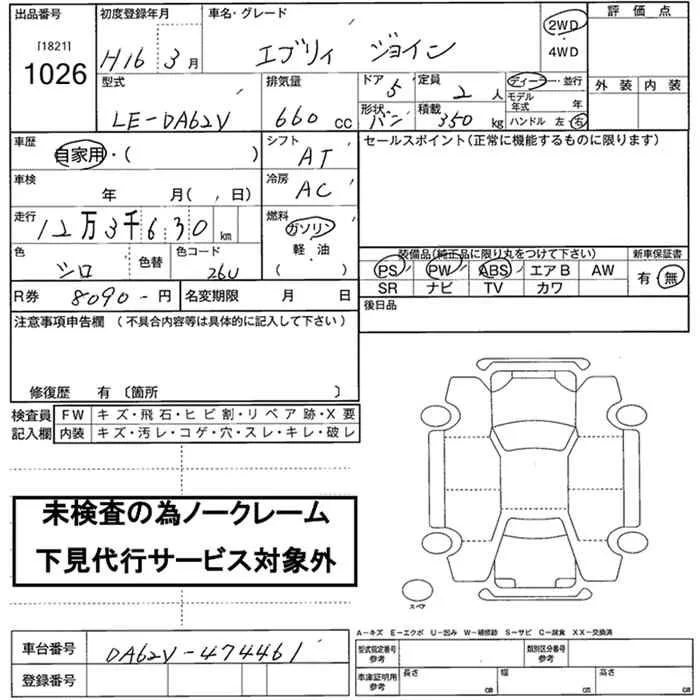 出品番号 初度登録年月 車名・グレード 評価点
[1821]
1026
H16 3月 エブリィ ジョイン 2WD・4WD
型式 排気量 ドア 定員 ディーラー・並行 外装 内装
LE-DA62V 660cc 5 2人 モデル年式 年
形状 積載 ハンドル 左・右
バン 350kg
車歴 シフト セールスポイント(正常に機能するものに限ります)
自家用・( ) AT
車検 冷房
年 月( , 日) AC
走行 燃料
12万3千630km ガソリン・軽油・( )
色 色替 色コード 装備品(純正品に限り丸をつけて下さい) 新車保証書
シロ 26U PS PW ABS エアB AW 有・無
R券 8090-円 名変期限 月 日 SR ナビ TV カワ
注意事項申告欄 (不具合内容等は具体的に記入して下さい) 後日品
修復歴 有 〔箇所 〕
検査員 FW キズ・飛石・ヒビ割・リペア跡・X要
記入欄 内装 キズ・汚レ・コゲ・穴・スレ・キレ・破レ
未検査の為ノークレーム
下見代行サービス対象外
スペア
A-キズ E-エクボ U-凹み W-補修跡 S-サビ C-腐食 XX-交換済
車台番号 DA62V-474461 型式指定番号 参考 類別区分番号 参考
登録番号 車庫証明用 参考 長さ cm 幅 cm 高さ cm